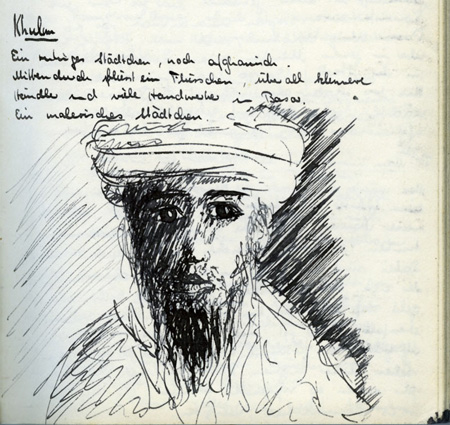 Khulm
Ein ruhiges Städtchen, noch afghanisch.
Mittendurch fliesst ein Flüsschen, überall kleinere
Händler und viele Handwerker im Basar.
Ein malerisches Städtchen.